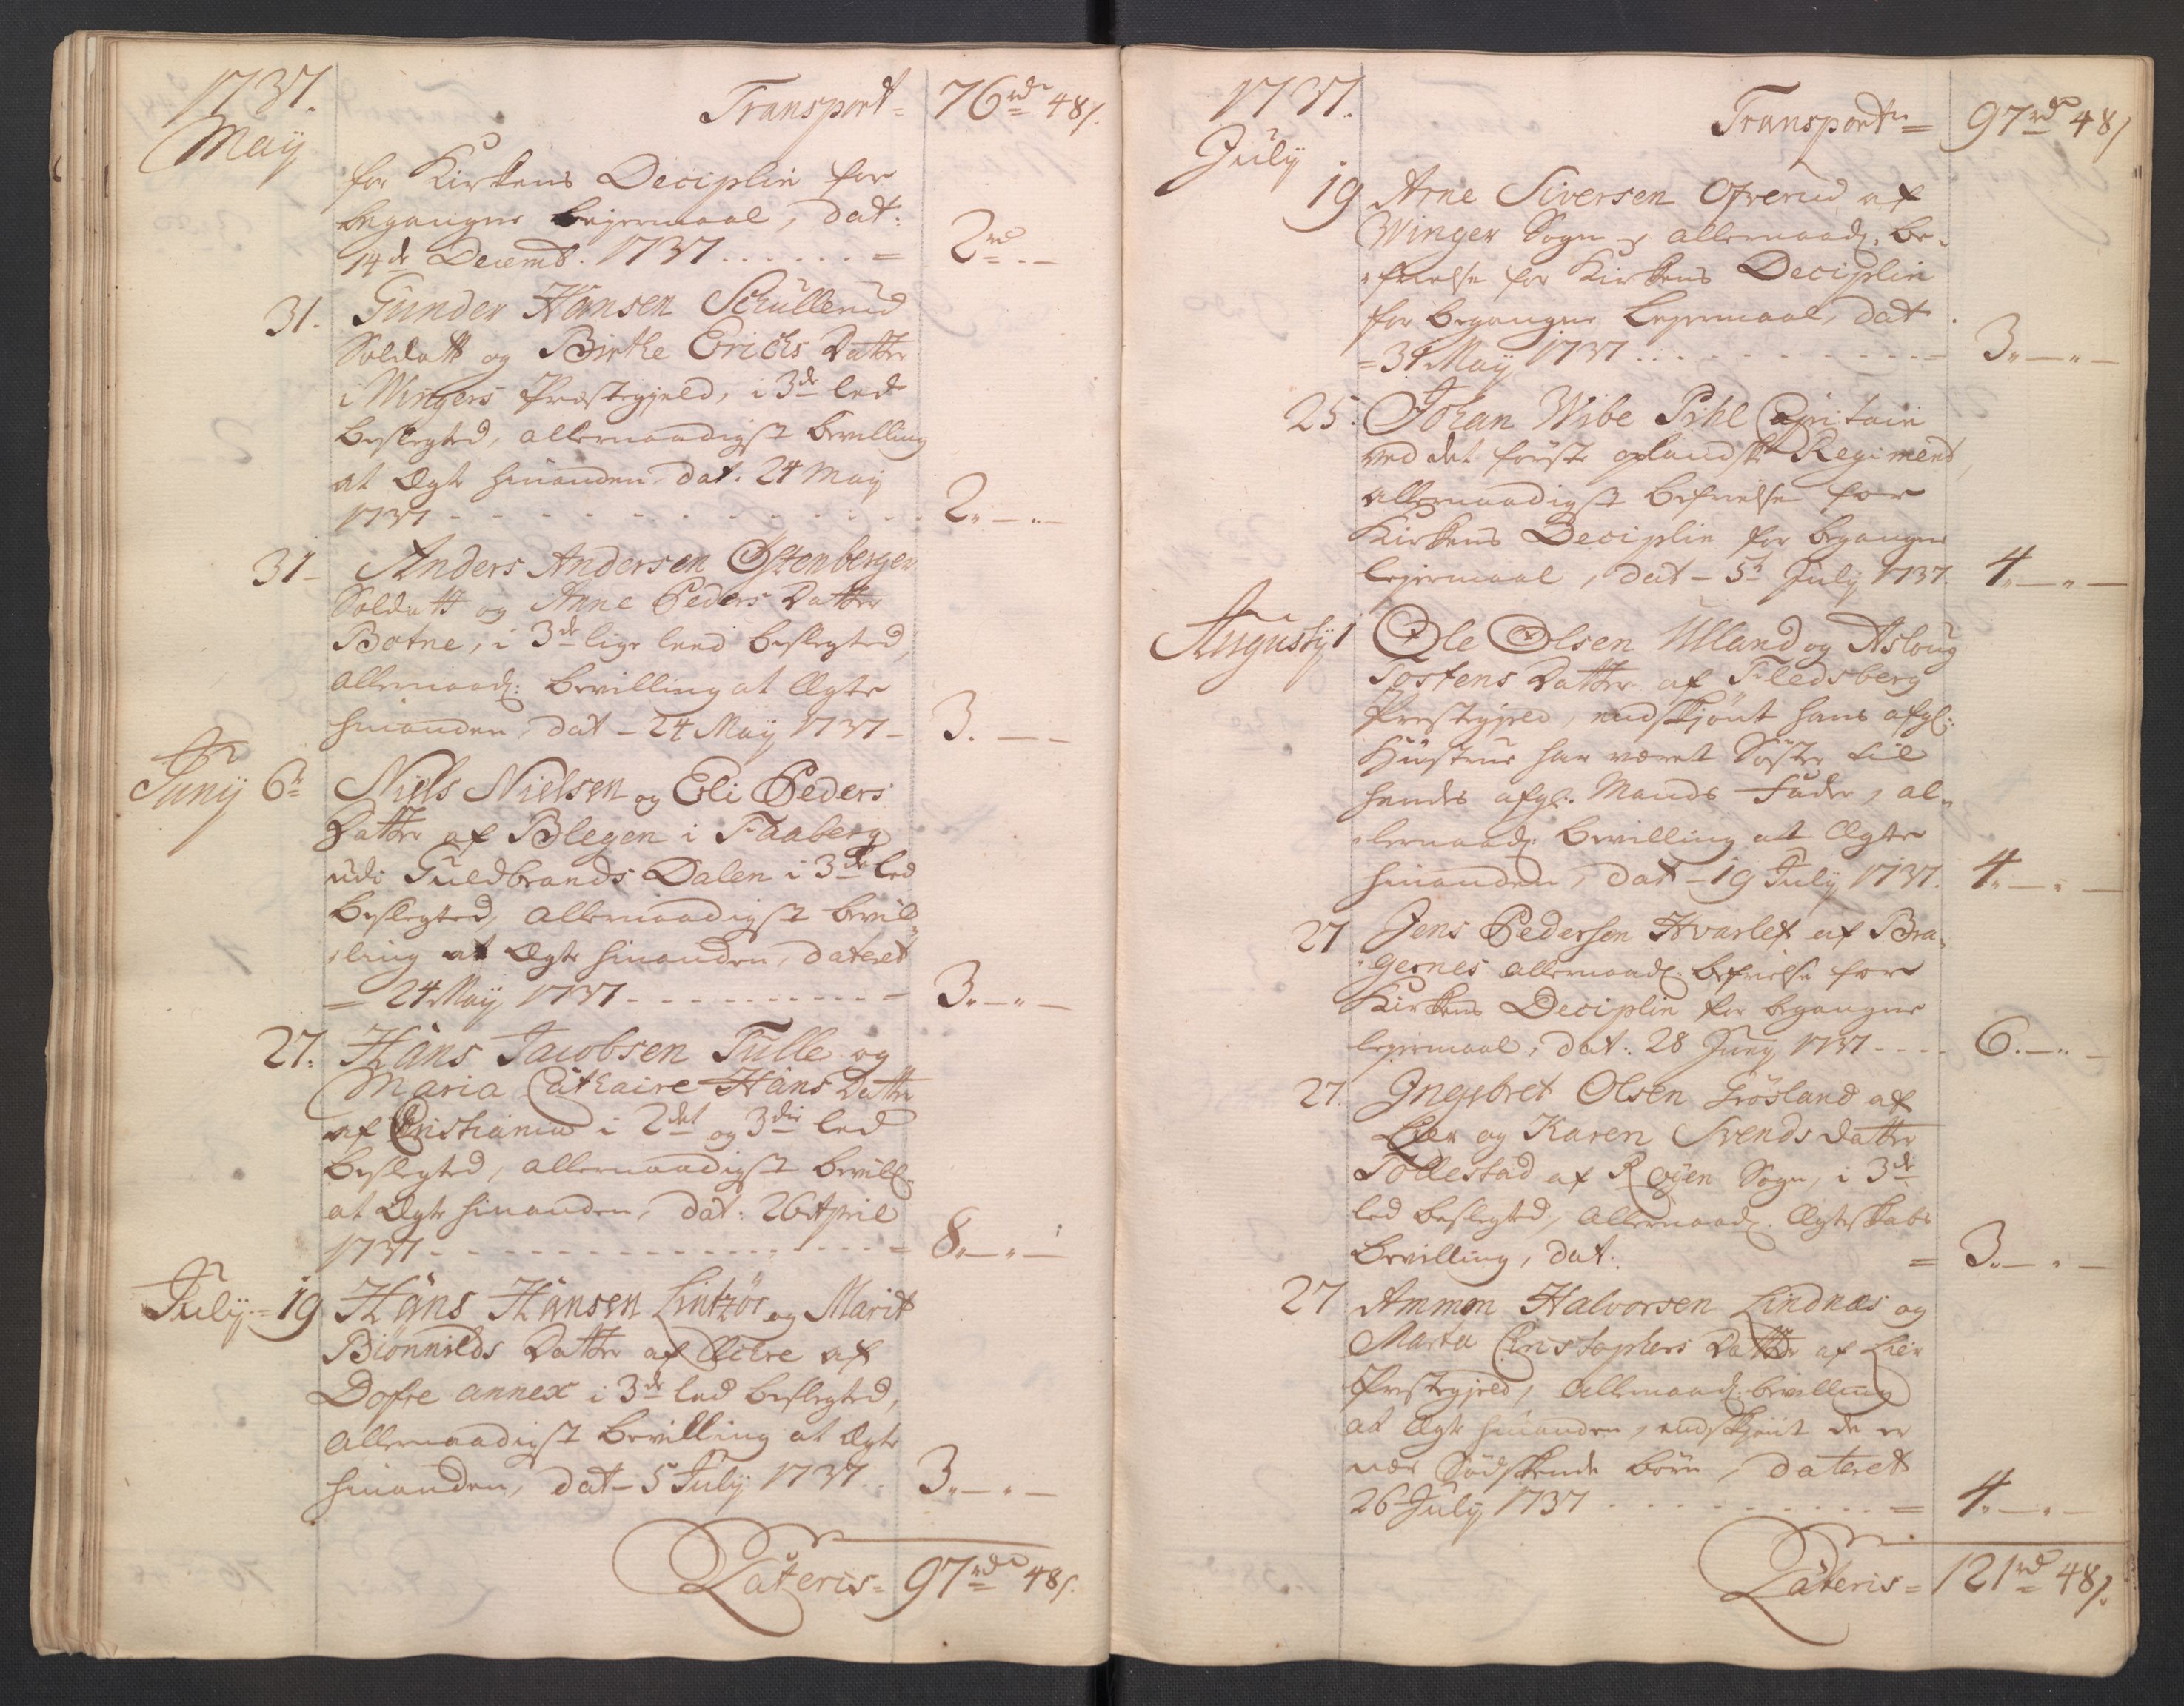 1737.
Transport = 76 rd 48 s.
May
for Kirkens Deciplin for
begangne Leyermaal, dat:
14de Decemb. 1737 . . . . . . = 2 rd . -
31. Gunder Hansen Schullerud
Soldatt og Birthe Erichs Datter
i Wingers Præstegjeld, i 3de led
beslegted, allernaadigst bevilling
at Ægte hinanden dat. 24 May
1737 - - - - - - - - 2 „ - „ -
31 - Anders Andersen Ostenbergen
Soldatt og Anne Peders Datter
Botne, i 3de lige leed beslegted,
allernaad: bevilling at Ægte
hinanden, dat - 24 May 1737 - 3. - -
Juny 6te Niels Nielsen og Eli Peders
Datter af Blegen i Faaberg
udi Guldbrands Dalen i 3de led
beslegted, allernaadigst bevil-
ling at Ægte hinanden, dateret
= 24 May 1737 - - - - - - - - = 3 „ - „ -
27. Hans Jacobsen Tulle og
Maria Cathaire Hans Datter
af Christiania i 2det og 3die led
beslegted, allernaadigst bevill.
at Ægte hinanden, dat: 26 April
1737 - - - - - - - - - = 8 „ - „ -
July = 19 Hans Hansen og Marit
Biönnilds Datter af
Dofre annex i 3de led beslegted,
allernaadigst bevilling at Ægte
hinanden, dat - 5 July 1737 . . 3 „ - „ -
Lateris = 97 rd 48 s.
1737.
Transport = 97 rd 48 s
July
19 Arne Siversen Ofrerud af
Winger Sogn allernaad. be-
frielse for Kirkens Deciplin
for begangne Leyermaal, dat
= 31 May 1737 . . . . . . . . 3 „ - „ -
25. Johan Wibe Pihl Capitain
ved det förste oplandske Regiment,
allernaadigst befrielse for
Kirkens Deciplin for begangne
Leyermaal, dat - 5t July 1737. 4 „ - „ -
Augusty 1 Ole Olsen Ulland og Asloug
Tostens Datter af Fledsberg
Præstegjeld, endskjönt hans afgl:
Hustrue har været Söster til
hendes afgl. Mands Fader, al-
lernaad. bevilling at Ægte
hinanden, dat - 19 July 1737. 4 „ - „ -
27 Jens Pedersen Hvarlef af Bra-
gernes allernaad. befrielse for
Kirkens Deciplin for begangne
Leyermaal, dat: 28 Juny 1737 - - - - 6. - „ -
27. Ingebret Olsen Grösland af
Lier og Karen Svends datter
Tollestad af Röyen Sogn, i 3de
led beslegted, allernaad. Ægteskabs
bevilling, dat: = 3 „ - „ -
27 Ammon Halvorsen Lindnæs og
Marta Christophers Datter af Lier
Præstegjeld, allernaad. bevilling
at Ægte hinanden, endskjönt de er
nær Södskende börn, dateret
26 July 1737 - - - - - - - - = 4 „ - „ -
Lateris = 121 rd 48 s.